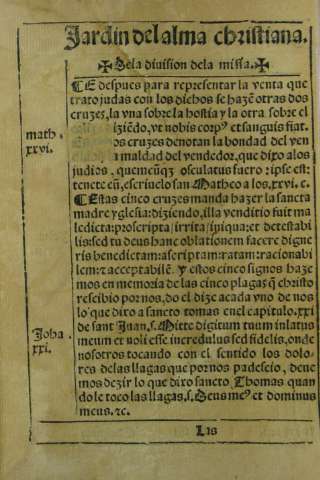 Jardin del alma christiana.
✠ Dela diuision dela missa. ✠
¶ E despues para representar la venta que
trato judas con los dichos se haze otras dos
cruzes, la vna sobre la hostia y la otra sobre el
diziẽdo, vt nobis corpꝰ et sanguis fiat.
os cruzes denotan la bondad del ven
a maldad del vendedor, que dixo a los
judios, quemcũqꝫ osculatus fuero: ipse est:
tenete eũ, escriuelo san Matheo a los, xxvi. c.
¶ Estas cinco cruzes manda hazer la sancta
madre yglesia: diziendo, illa venditio fuit ma
ledicta: proscripta, irrita, iniqua: et detestabi
lis: sed tu deus hanc oblationem facere digne
ris benedictam: ascriptam: ratam: racionabi
lem: ⁊ acceptabilẽ. Y estos cinco signos haze
mos en memoria de las cinco plagas q̃ christo
rescibio por nos, do el dize acada vno de nos
lo que dixo a sancto tomas en el capitulo. xxi
de sant Juan, s. Mitte digitum tuum in latus
meum et noli esse incredulus sed fidelis, onde
nosotros tocando con el sentido los dolo
res delas llagas que por nos padescio, deue
mos dezir lo que dixo sancto Thomas quan
do le toco las llagas, s. Deus meꝰ et dominus
meus. ⁊c.
math.
xxvi.
Joha
xxi.
Lis